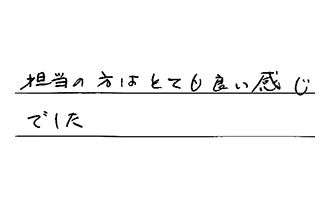 担当の方はとても良い感じ
でした